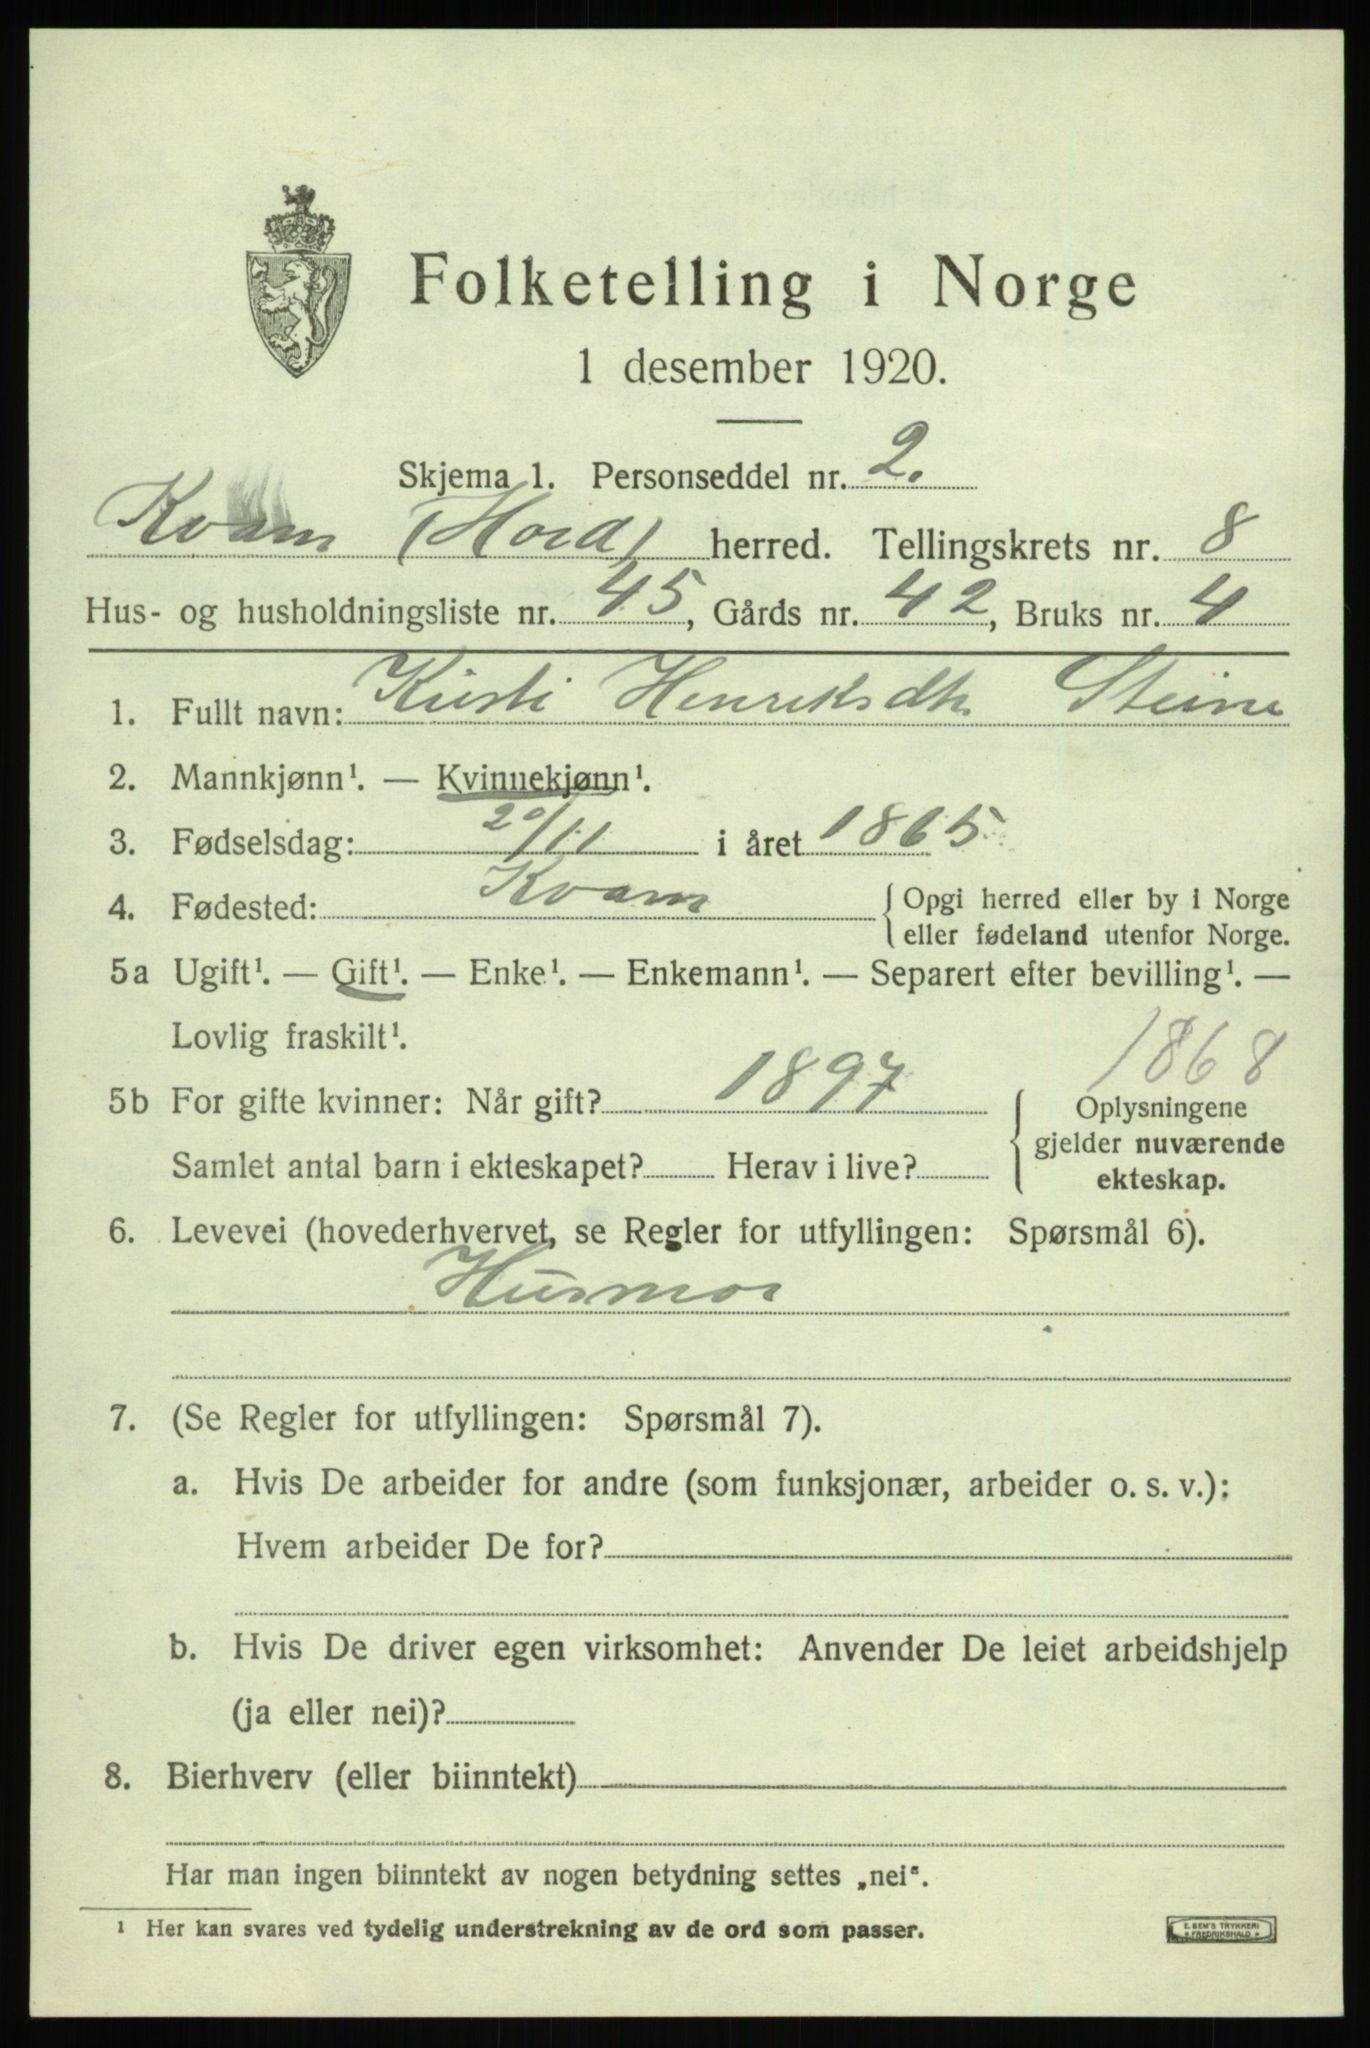 Folketelling i Norge
1 desember 1920.
Skjema 1. Personseddel nr. 2.
Kvam (Hord) herred. Tellingskrets nr. 8
Hus- og husholdningsliste nr. 45, Gårds nr. 42, Bruks nr. 4
1. Fullt navn: Kirsti Henriksdtr. Steine
2. Mannkjønn¹. — Kvinnekjønn¹.
3. Fødselsdag: 20/11 i året 1865
4. Fødested: Kvam {Opgi herred eller by i Norge
eller fødeland utenfor Norge.
5a Ugift¹. — Gift¹. — Enke¹. — Enkemann¹. — Separert efter bevilling¹. —
Lovlig fraskilt¹.
1868
5b For gifte kvinner: Når gift? 1897 {Oplysningene
gjelder nuværende
Samlet antal barn i ekteskapet? Herav i live?
ekteskap.
6. Levevei (hovederhvervet, se Regler for utfyllingen: Spørsmål 6).
Husmor
7. (Se Regler for utfyllingen: Spørsmål 7).
a. Hvis De arbeider for andre (som funksjonær, arbeider o. s. v.):
Hvem arbeider De for?
b. Hvis De driver egen virksomhet: Anvender De leiet arbeidshjelp
(ja eller nei)?
8. Bierhverv (eller biinntekt)
Har man ingen biinntekt av nogen betydning settes „nei".
¹ Her kan svares ved tydelig understrekning av de ord som passer.
E. SEM'S TRYKKERI
FREDRIKSHALD